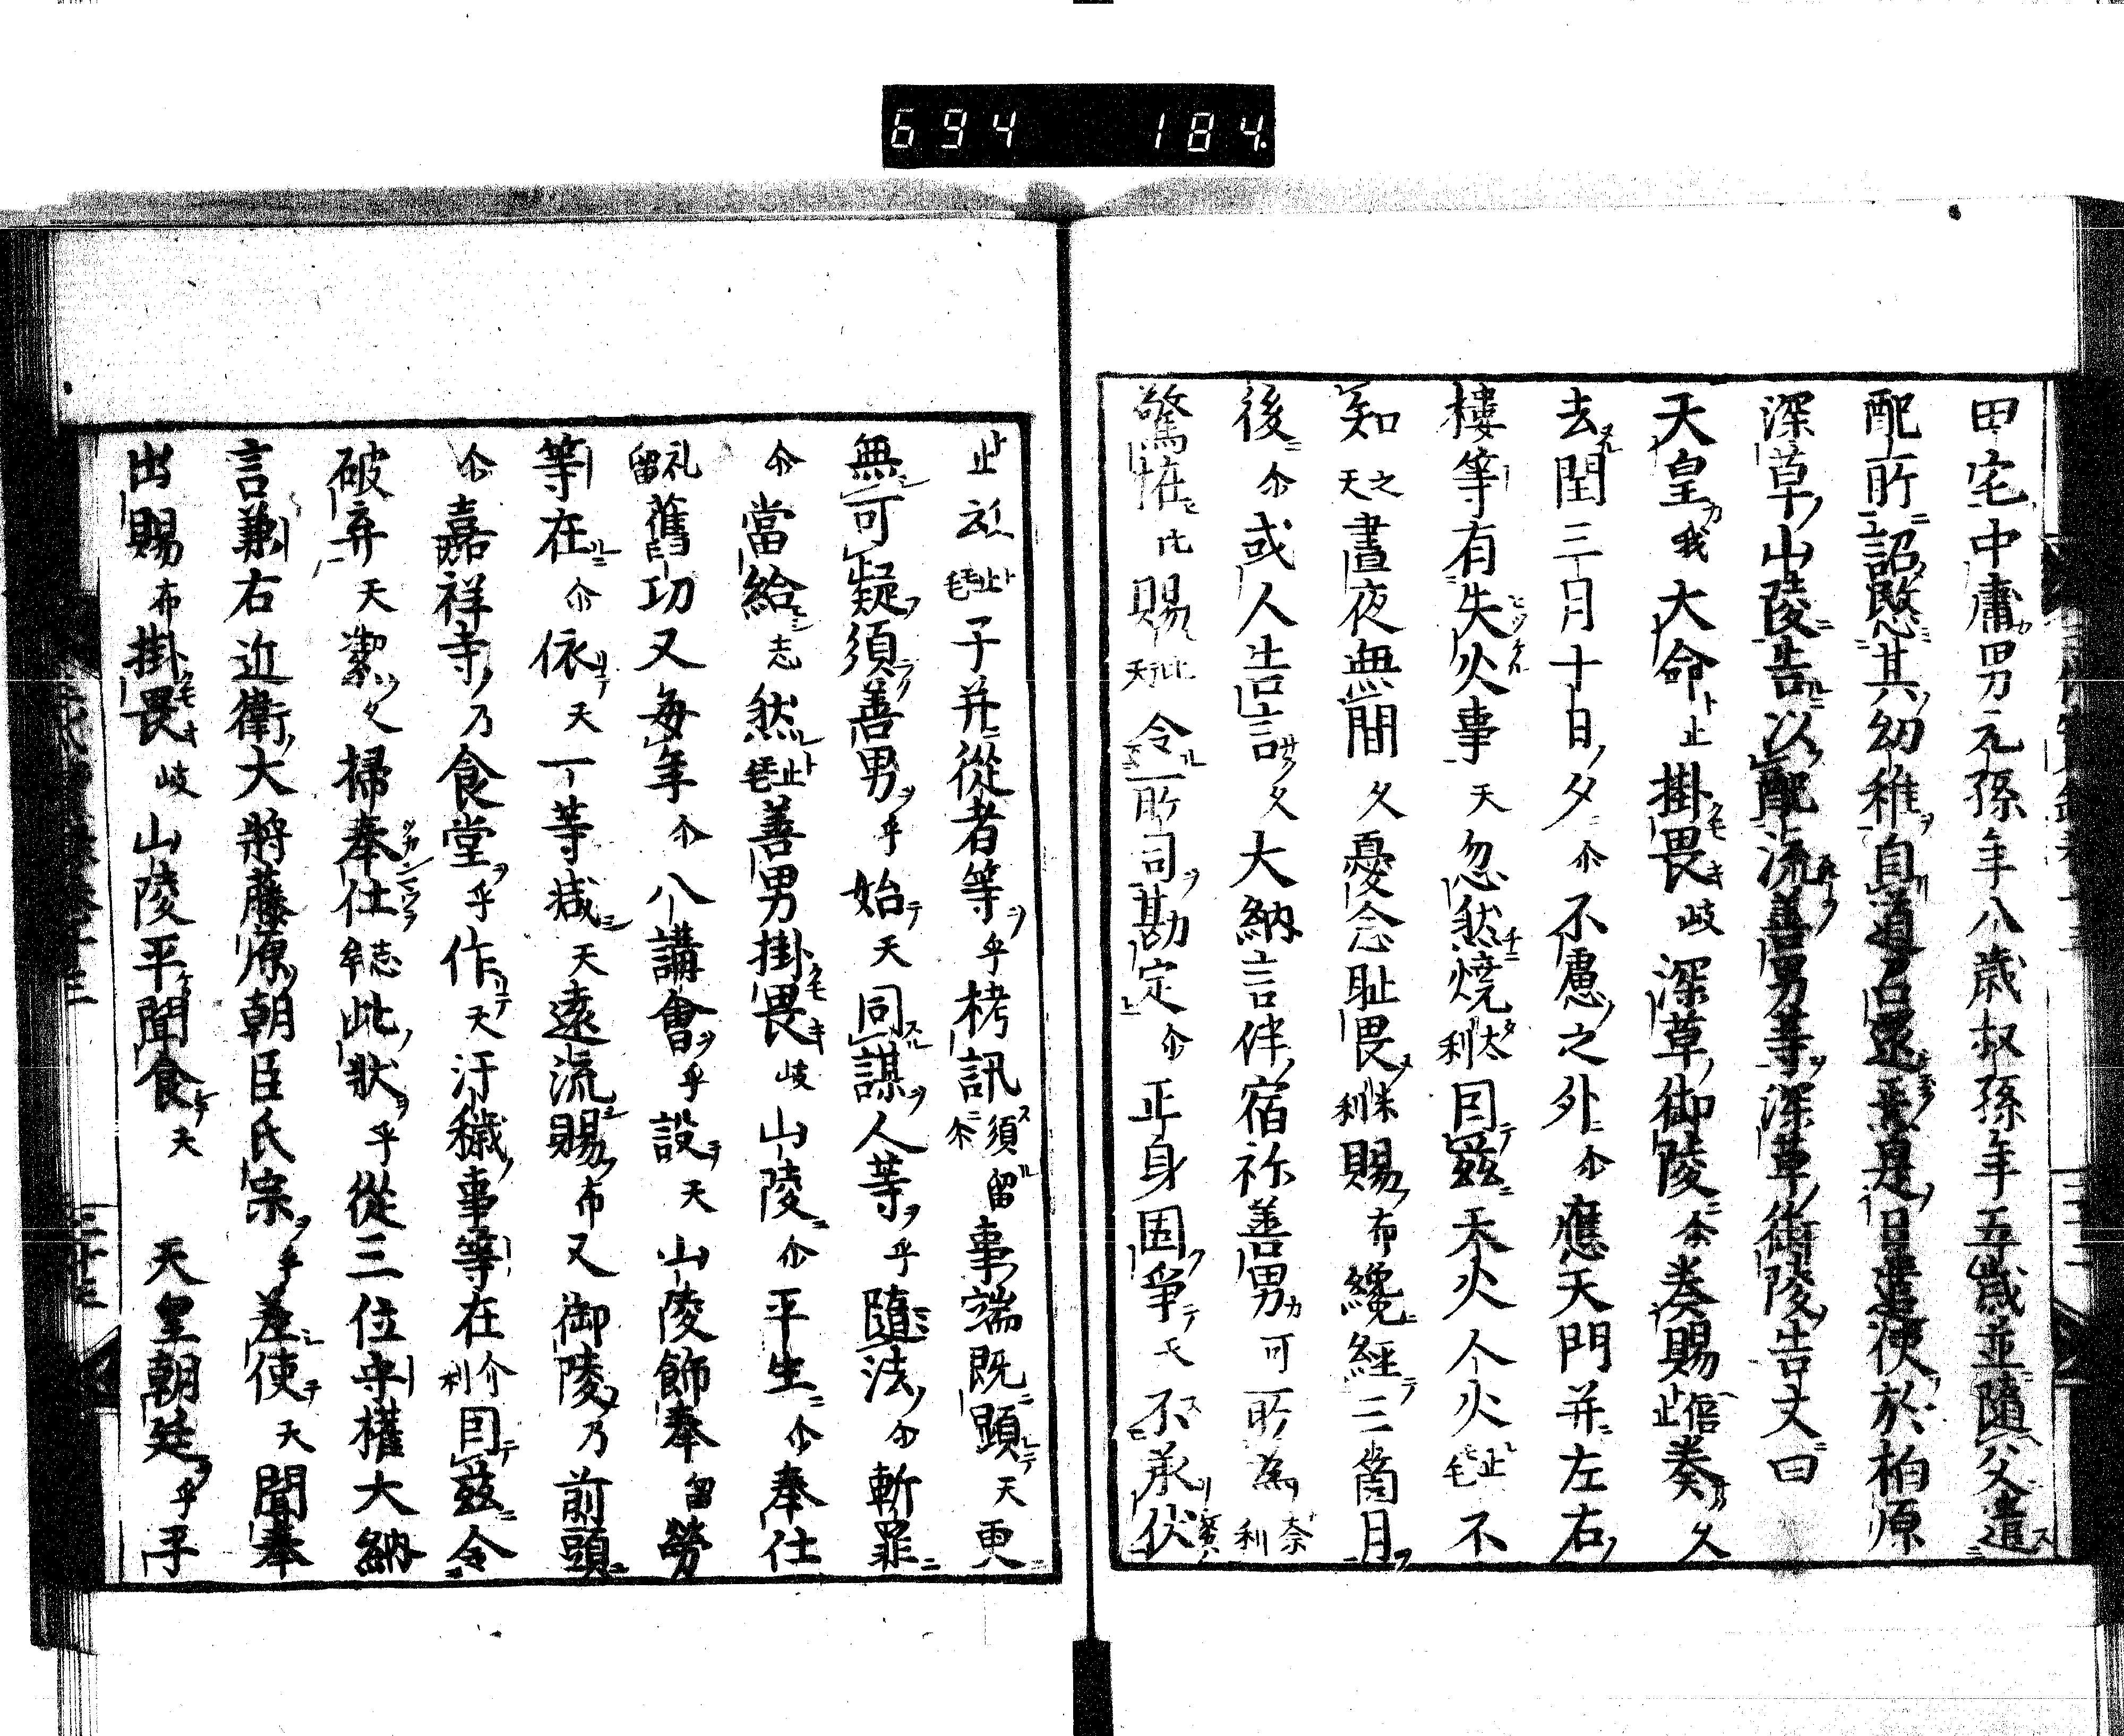 694 184.
田宅中庸男元孫年八歳叔孫年五歳並隨父遣
配所詔愍其幼稚自道召還焉是日遣使於柏原
深草山陵告以配流善男等深草御陵告文曰
天皇我大命止掛畏岐深草御陵尒奏賜倍止奏久
去閏三月十日夕尒不慮之外尒應天門并左右
樓等有失火事天忽然燒太利因茲天火人火止毛不
知之天晝夜無間久憂念耻畏利賜布纔經三箇月
後尒或人告言久大納言伴宿祢善男可所為奈利
驚恠比賜比天令所司勘定尒正身固爭天不承伏
止云止毛子并從者等乎栲訊須留尒事端既顕天更
無可疑須善男乎始天同謀人等乎隨法尒斬罪
尒當給志然止毛善男掛畏岐山陵尒平生尒奉仕
礼留舊功又每年尒八講會乎設天山陵飾奉留勞
等在尒依天一等減天遠流賜布又御陵乃前頭
尒嘉祥寺乃食堂乎作天汙穢事等在介利因茲令
破弃天潔久掃奉仕志牟此狀乎從三位守權大納
言兼右近衛大將藤原朝臣氏宗乎差使天聞奉
出賜布掛畏岐山陵平聞食天 天皇朝廷乎手